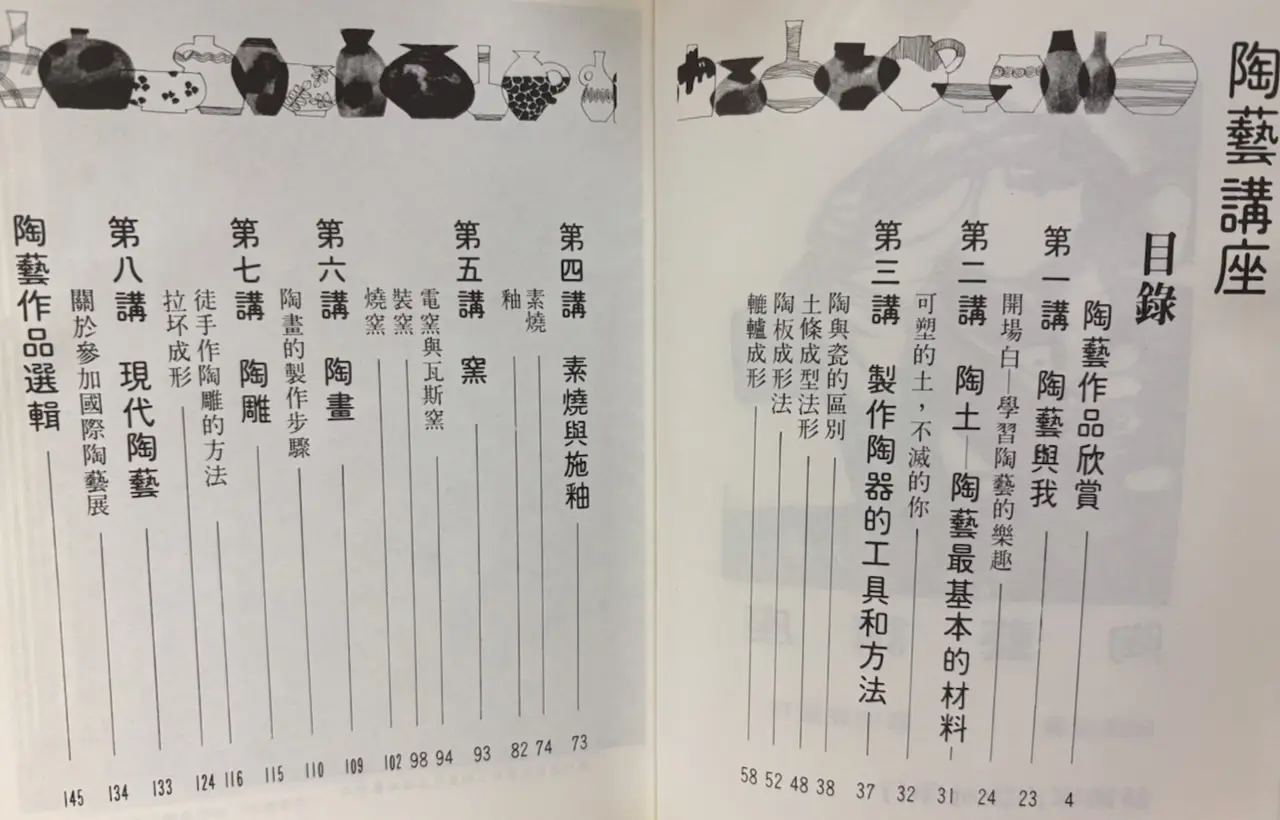 陶藝講座
目錄
陶藝作品欣賞 4
第一講 陶藝與我 23
開場白—學習陶藝的樂趣 24
第二講 陶土—陶藝最基本的材料 31
可塑的土，不滅的你 32
第三講 製作陶器的工具和方法 37
陶與瓷的區別 38
土條成型法形 48
陶板成形法 52
轆轤成形 58
第四講 素燒與施釉 73
素燒 74
釉 82
第五講 窯 93
電窯與瓦斯窯 94
裝窯 98
燒窯 102
第六講 陶畫 109
陶畫的製作步驟 110
第七講 陶雕 115
徒手作陶雕的方法 116
拉坯成形 124
第八講 現代陶藝 133
關於參加國際陶藝展 134
陶藝作品選輯 145